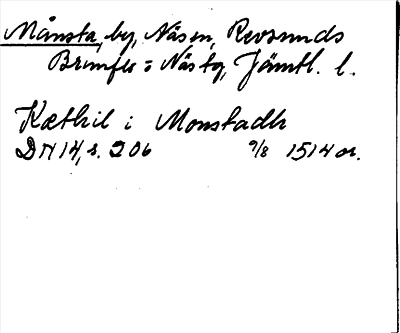 Månsta, by, Näsen, Revsunds
Brunflo : Näs tg, Jämtl. l.
Kæthil i Monstadh
DN 14, s. 206 9/8 1514 or.